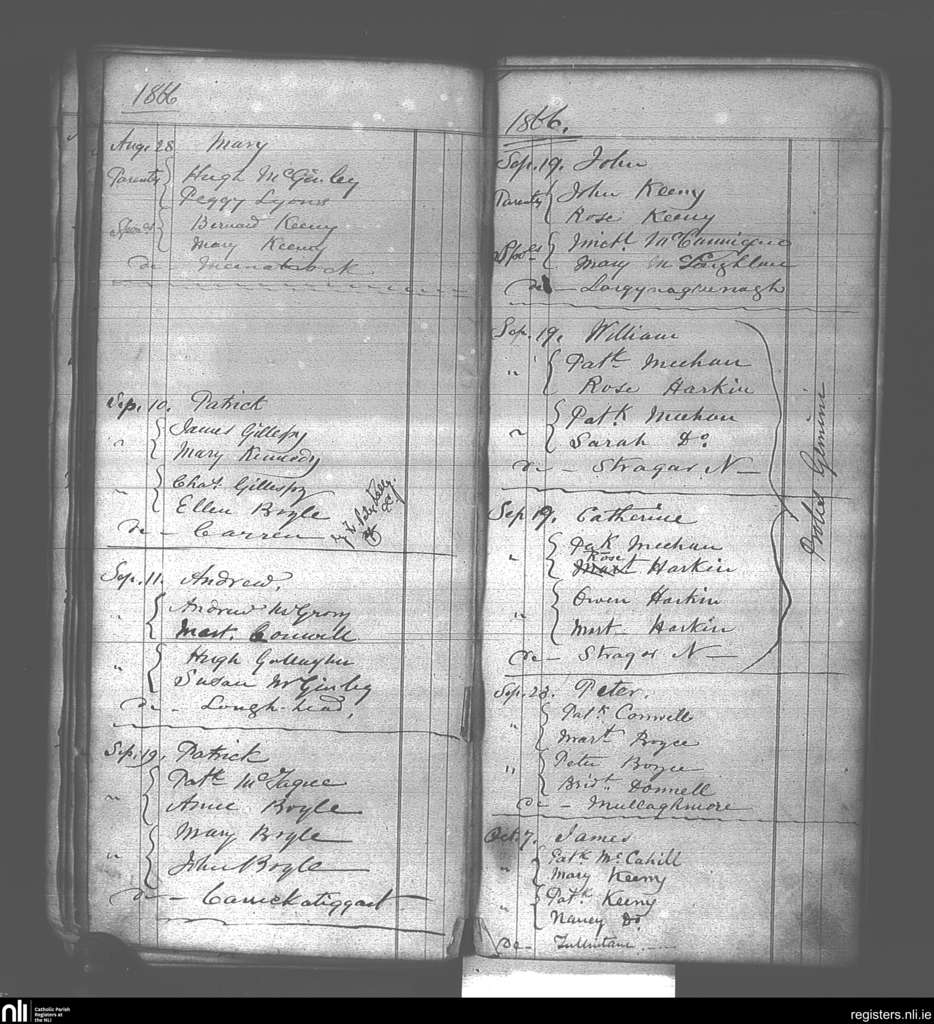 1866
Aug. 28 Mary
Parents Hugh McGinley
Peggy Lyons
Spons Bernard Keeny
Mary Keeny
de - Meenabrock
Sep. 10. Patrick
" James Gillespy
Mary Kennedy
" Chas. Gillespy
Ellen Boyle
de - Carren
by
Sep. 11. Andrew.
" Andrew McGrory
Mart. Conwell
" Hugh Gallagher
Susan McGinley
de - Lough-head.
Sep. 19. Patrick
" Patk McTague
Anne Boyle
" Mary Boyle
John Boyle
de - Carrickatiggart
1866.
Sep. 19. John
Parents John Keeny
Rose Keeny
Spons Michl
Mary McLoighlin
de -
Sep. 19. William
" Patk Meehan
Rose Harkin
" Patk Meehan
Sarah Do.
de - Stragar N -
Sep 19. Catherine
" Patk Meehan
Rose
Mart Harkin
" Owen Harkin
Mart - Harkin
de - Stragar N -
Proles Gemini
Sep. 23. Peter.
" Patk Conwell
Mart Boyce
" Peter Boyce
Bridt. Donnell
de - Mullaghmore
Oct. 7. James
" Patk McCahill
Mary Keeny
" Patk Keeny
Nancy Do.
de -
nli Catholic Parish
Registers at
the NLI
registers.nli.ie